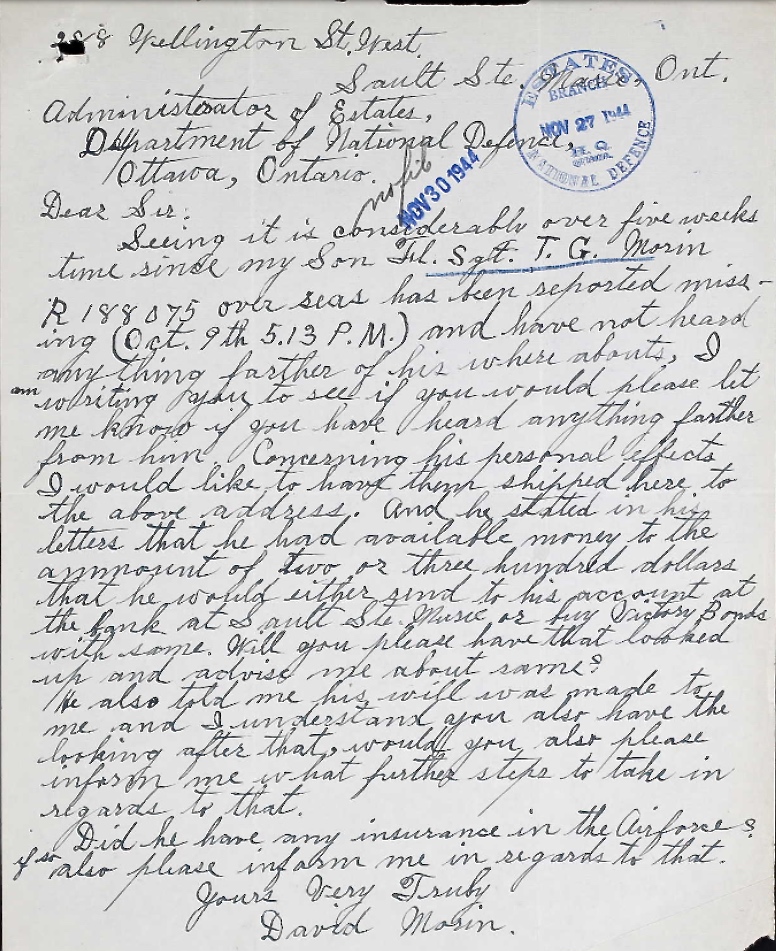 Wellington St. West.
Sault Ste. Marie, Ont.
ESTATES
BRANCH
NOV 27 1944
H.Q.
OTTAWA
NATIONAL DEFENCE
Administrator of Estates,
Department of National Defence,
Ottawa, Ontario.
no file
NOV 30 1944
Dear Sir:
Seeing it is considerably over five weeks
time since my Son Fl. Sgt. T. G. Morin
R 188075 over seas has been reported miss-
ing (Oct. 9th 5.13 P.M.) and have not heard
any thing farther of his where abouts, I
am writing you to see if you would please let
me know if you have heard anything farther
from him. Concerning his personal effects
I would like to have them shipped here to
the above address. And he stated in his
letters that he had available money to the
ammount of two or three hundred dollars
that he would either send to his account at
the bank at Sault Ste. Marie or buy Victory Bonds
with same. Will you please have that looked
up and advise me about same?
He also told me his will was made to
me and I understand you also have the
looking after that, would you also please
inform me what further steps to take in
regards to that.
Did he have any insurance in the Airforce?
if so also please inform me in regards to that.
Yours Very Truly
David Morin.